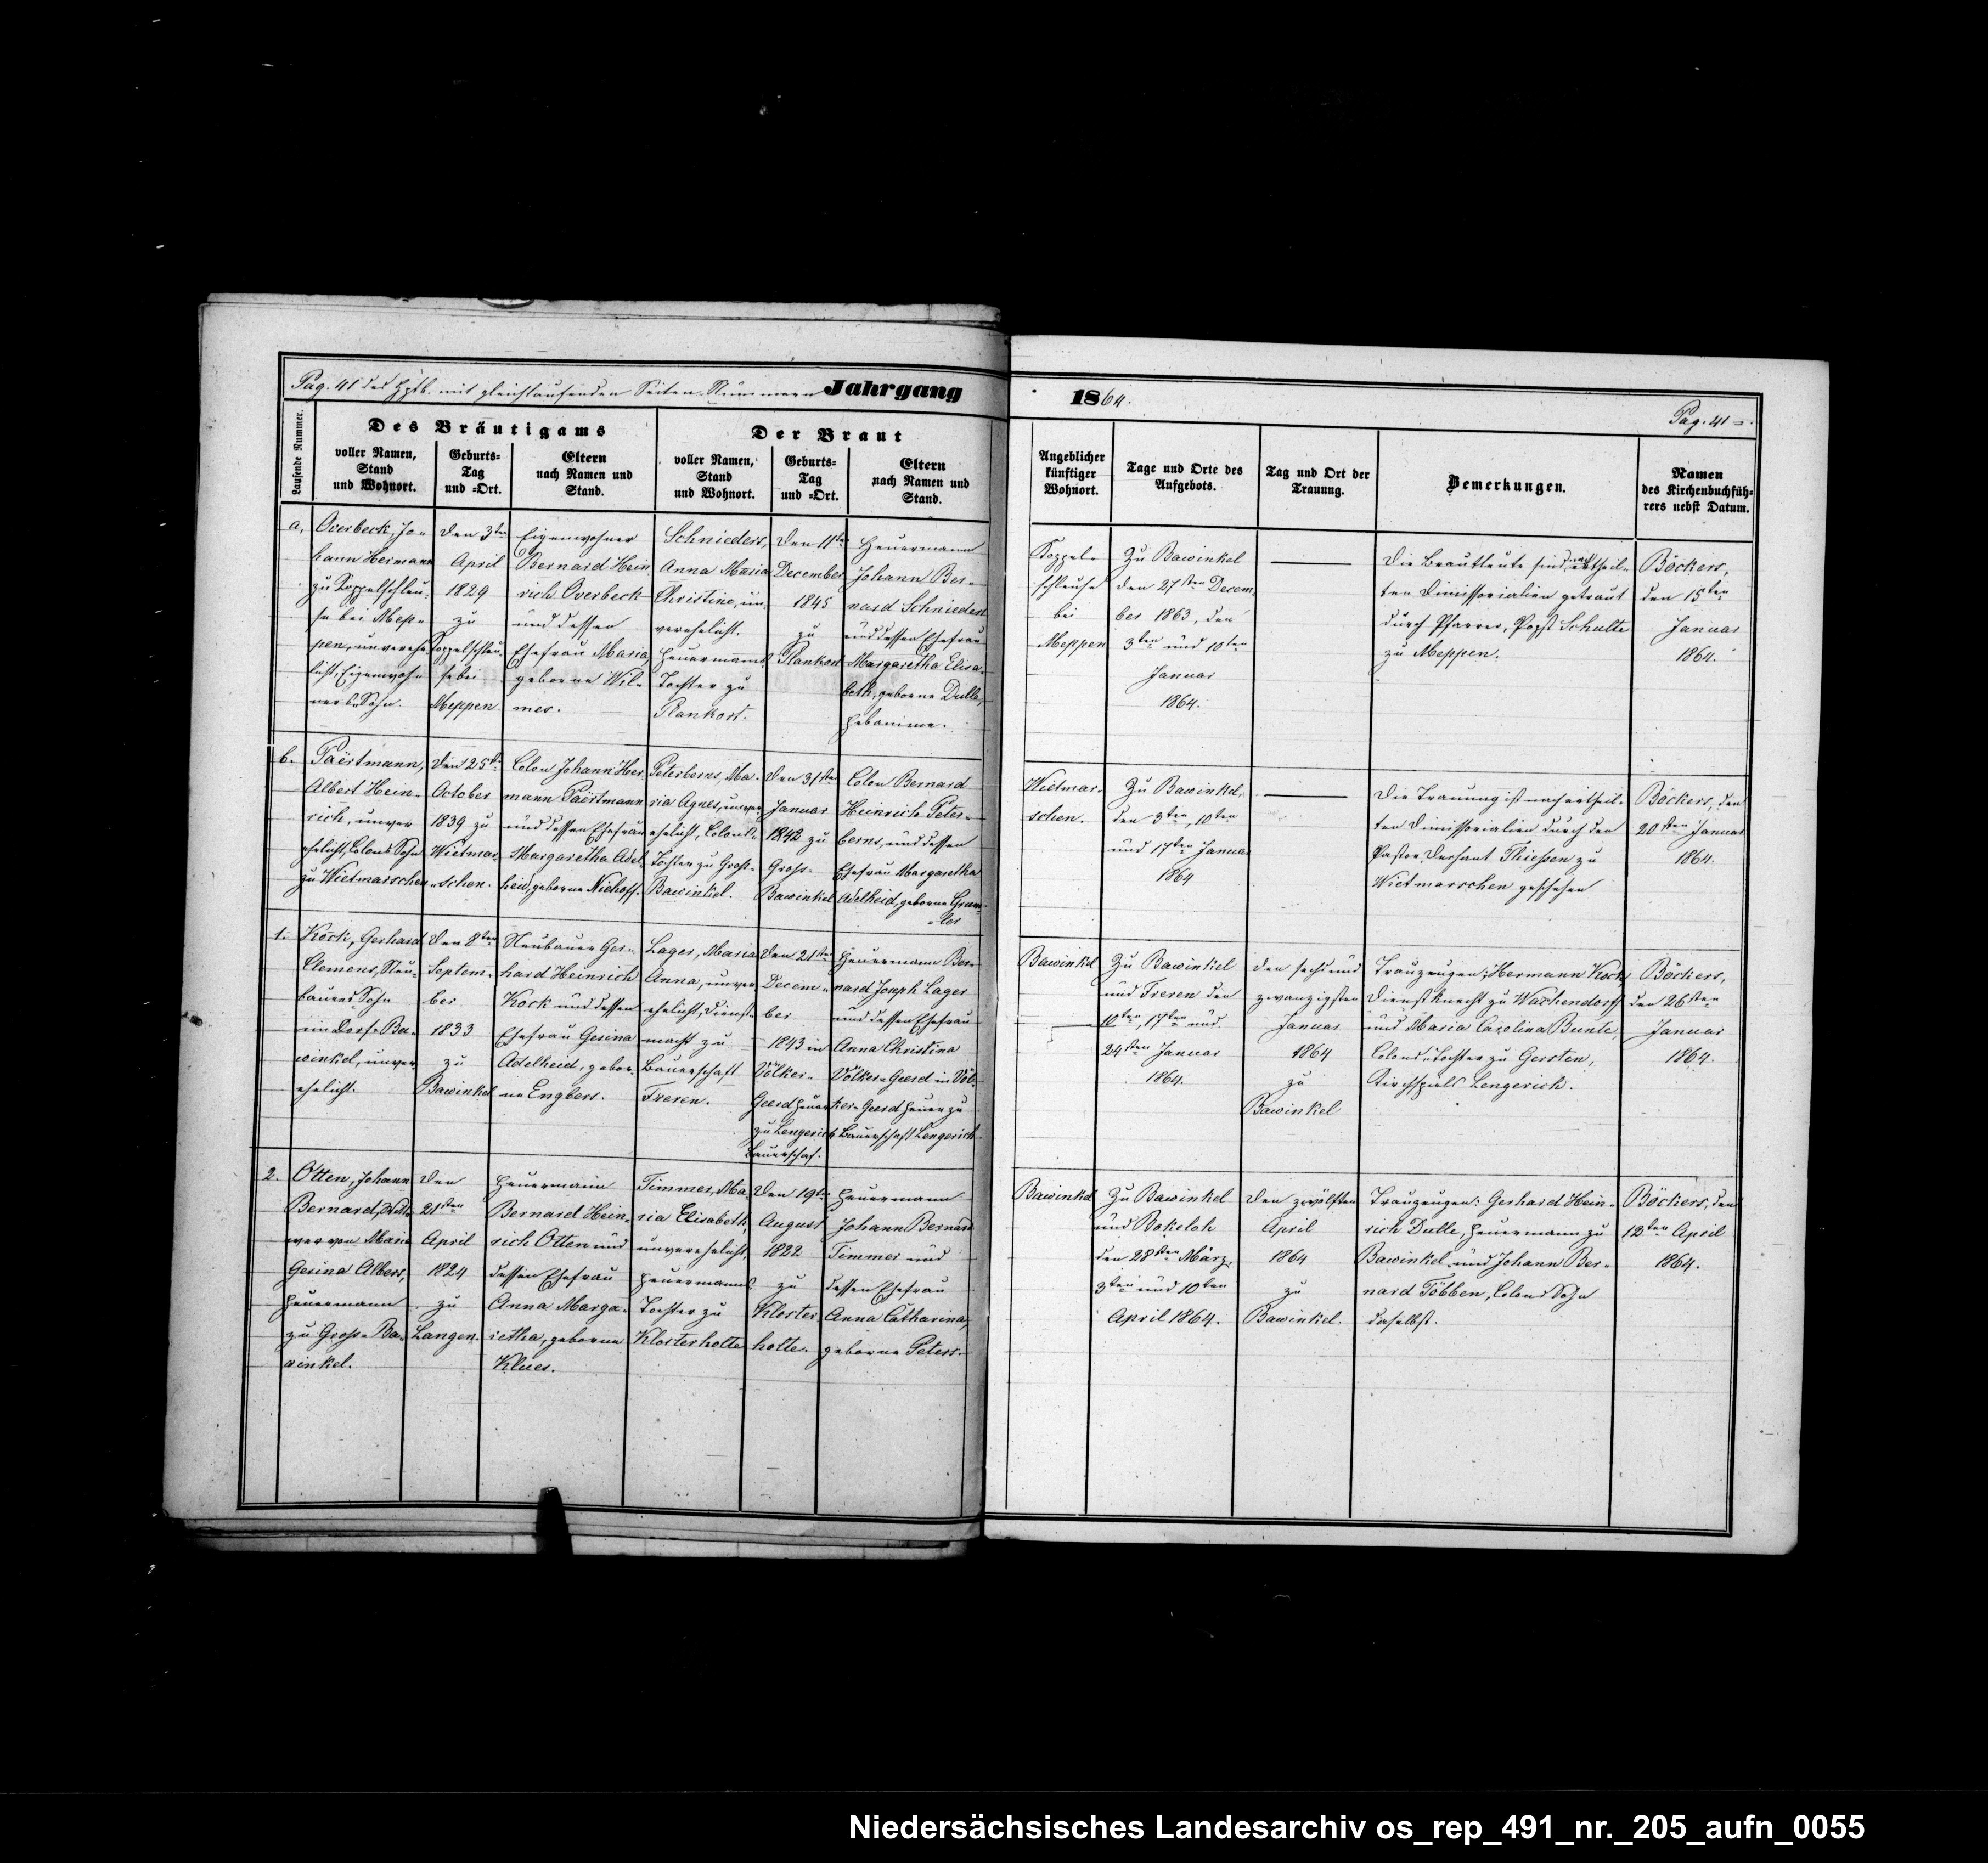 Pag. 41 des Hptb. mit gleichlaufenden Seiten-Nummern Jahrgang
1864.
Pag. 41
Laufende Nummer.
Des Bräutigams
voller Namen,
Stand
und Wohnort.
Geburts-
Tag
und -Ort.
Eltern
nach Namen und
Stand.
Der Braut
voller Namen,
Stand
und Wohnort.
Geburts-
Tag
und -Ort.
Eltern
nach Namen und
Stand.
Angeblicher
künftiger
Wohnort.
Tage und Orte des
Aufgebots.
Tag und Ort der
Trauung.
Bemerkungen.
Namen
des Kirchenbuchfüh-
rers nebst Datum.
a.
Overbeck, Jo-
hann Hermann
zu Koppelschleu-
se bei Mep-
pen, unverehe-
licht, Eigenwoh-
ners Sohn.
Den 3ten
April
1829
zu
Koppelschleu-
se bei
Meppen.
Eigenwohner
Bernard Hein-
rich Overbeck
und dessen
Ehefrau Maria
geborne Wil-
mes.
Schnieders,
Anna Maria
Christine, un-
verehelicht,
Heuermanns
Tochter zu
Plankort.
Den 11ten
December
1845
zu
Plankort
Heuermann
Johann Ber-
nard Schnieders
und dessen Ehefrau
Margaretha Elisa-
beth, geborne Dulle,
Hebamme.
Koppel-
schleuse
bei
Meppen
Zu Bawinkel
den 27sten Decem-
ber 1863, den
3ten und 10ten
Januar
1864.
Die Brautleute sind nach ertheil-
ten Dimissorialien getraut
durch Pfarrer, Propst Schulte
zu Meppen.
Böckers,
den 15ten
Januar
1864.
b.
Paërtmann,
Albert Hein-
rich, unver-
ehelicht, Colons Sohn
zu Wietmarschen
Den 25ten
October
1839 zu
Wietmar-
schen.
Colon Johann Her-
mann Paërtmann
und dessen Ehefrau
Margaretha Adel-
heid, geborne Niehoff.
Peterberns, Ma-
ria Agnes, unver-
ehelicht, Colons-
Tochter zu Groß-
Bawinkel.
Den 31sten
Januar
1842 zu
Gross-
Bawinkel
Colon Bernard
Heinrich Peter-
berns, und dessen
Ehefrau Margaretha
Adelheid, geborne
Wietmar-
schen.
Zu Bawinkel,
den 3ten, 10ten
und 17ten Januar
1864
Die Trauung ist nach ertheil-
ten Dimissorialien durch den
Pastor, Dechant Thiessen zu
Wietmarschen geschehen
Böckers, den
20sten Januar
1864.
1.
Kock, Gerhard
Clemens, Neu-
bauers Sohn
im Dorfe Ba-
winkel, unver-
ehelicht.
Den 8ten
Septem-
ber
1833
zu
Bawinkel
Neubauer Ger-
hard Heinrich
Kock und dessen
Ehefrau Gesina
Adelheid, gebor-
ne Engbers.
Lager, Maria
Anna, unver-
ehelicht, Dienst-
macht zu
Bauerschaft
Freren.
Den 21sten
Decem-
ber
1843 in
Völker-
Geerd Heuer
zu Lengerich
Bauerschaf.
Heuermann Ber-
nard Joseph Lager
und dessen Ehefrau
Anna Christina
Völker-Geerd in Völ-
ker-Geerd Heuer zu
Bauerschaft Lengerich
Bawinkel
Zu Bawinkel
und Freren den
10ten, 17ten und
24sten Januar
1864.
Den sechs und
zwanzigsten
Januar
1864
zu
Bawinkel
Trauzeugen: Hermann Kock,
Dienstknecht zu Wachendorf
und Maria Carolina Bunte,
Colons-Tochter zu Gersten,
Kirchspiels Lengerich.
Böckers,
den 26sten
Januar
1864.
2.
Otten, Johann
Bernard, Wit-
wer von Maria
Gesina Albers,
Heuermann
zu Gross-Ba-
winkel.
Den
21sten
April
1824
zu
Langen.
Heuermann
Bernard Hein-
rich Otten und
dessen Ehefrau
Anna Marga-
retha, geborne
Klues.
Timmer, Ma-
ria Elisabeth,
unverehelicht,
Heuermanns
Tochter zu
Klosterholte
Den 19ten
August
1822
zu
Kloster
holte.
Heuermann
Johann Bernard
Timmer und
dessen Ehefrau
Anna Catharina,
geborne Peters.
Bawinkel
Zu Bawinkel
und Bokeloh
den 28sten März,
3ten und 10ten
April 1864.
Den zwölften
April
1864
zu
Bawinkel.
Trauzeugen: Gerhard Hein-
rich Dulle, Heuermann zu
Bawinkel und Johann Ber-
nard Többen, Colons Sohn
daselbst.
Böckers, den
12ten April
1864.
Niedersächsisches Landesarchiv os_rep_491_nr._205_aufn_0055